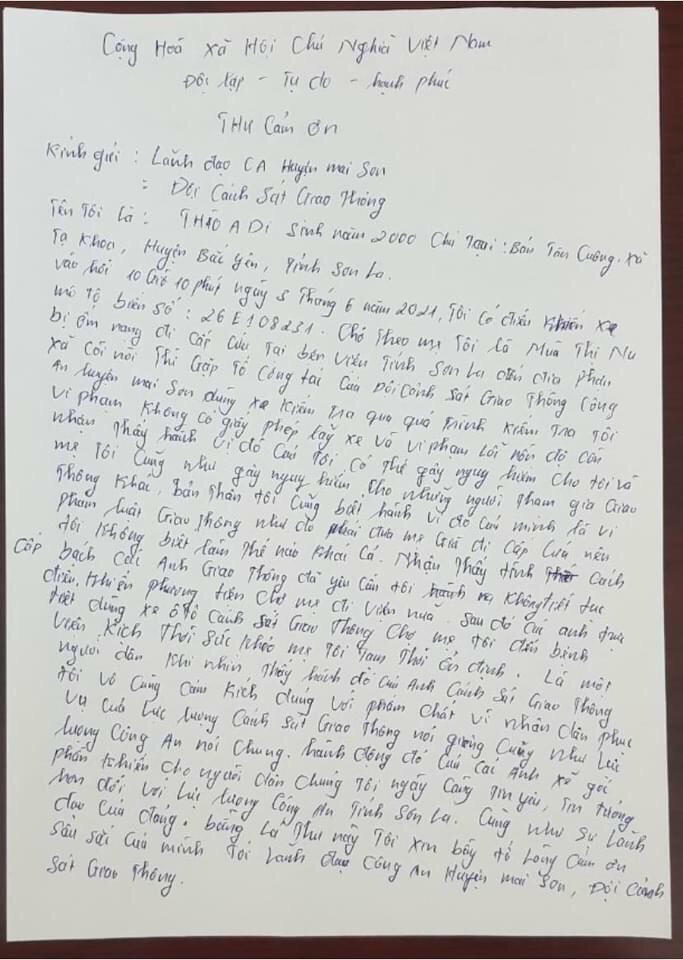 Cộng Hoà xã Hội Chủ Nghĩa Việt Nam
Độc lập - Tự do - hạnh phúc
THƯ Cảm ơn
Kính gửi : Lãnh đạo CA Huyện mai Sơn
= Đội Cảnh Sát Giao Thông
Tên Tôi là : THÀO A Di Sinh năm 2000 Chú Tại : Bản Tân Cuông. xã
Tạ Khoa, Huyện Bắc Yên, tỉnh Sơn La.
vào hồi 10 Giờ 10 phút ngày 5 Tháng 6 năm 2021, Tôi có điều khiển xe
mô tô biển số : 26E108231. Chở Theo mẹ Tôi là Mùa Thị Nu
bị ốm nặng đi Cấp Cứu Tại bện viên Tỉnh Sơn La đến địa phận
xã Cò nòi Thì Gặp Tổ Công tác Của Đội Cảnh Sát Giao Thông Công
An huyện mai Sơn dừng xe kiểm Tra qua quá Trình kiểm Tra Tôi
vi phạm không có giấy phép lấy xe và vi phạm Lỗi nồn độ cồn
nhận Thấy hành vi đó Của Tôi có Thể gây nguy hiểm cho tôi và
mẹ Tôi Cũng như gây nguy hiểm Cho những người Tham gia Giao
Thông khác, bản Thân tôi Cũng biết hành vi đó Của mình là vi
phạm luật Giao Thông như do phải đưa mẹ Già đi Cấp Cứu nên
tôi không biết làm Thế nào khác Cả. Nhận Thấy tình Cách
Cấp bách Các Anh Giao Thông đã yêu Cần tôi không Tiết tục
điều khiển phương tiện Chở mẹ đi viện nữa. Sau đó Các anh trực
tiết dùng xe ô tô Cảnh Sát Giao Thông Chở mẹ Tôi đến bệnh
viện kịch Thời Sức khỏe mẹ Tôi Tạm Thời ổn định. Là một
người dân Khi nhìn Thấy hành đó Của Anh Cảnh Sát Giao Thông
tôi vô Cùng Cảm kích đúng với phẩm Chất vì nhân dân phục
vụ của Lực lượng Cảnh Sát Giao Thông nói giêng Cũng như Lực
lượng Công An nói Chung. hành động đó Của Các Anh xẽ gói
phần khiến Cho người dân Chúng Tôi ngày Càng Tin yêu, Tin tưởng
hơn đối với Lực lượng Công An Tỉnh Sơn La. Cũng như Sự Lãnh
đạo Của đảng. bằng Lá Thư này Tôi xin bày tỏ Lòng Cảm ơn
sâu sắc Của mình Tới Lãnh đạo Công An Huyện mai Sơn, Đội Cảnh
Sát Giao Thông.